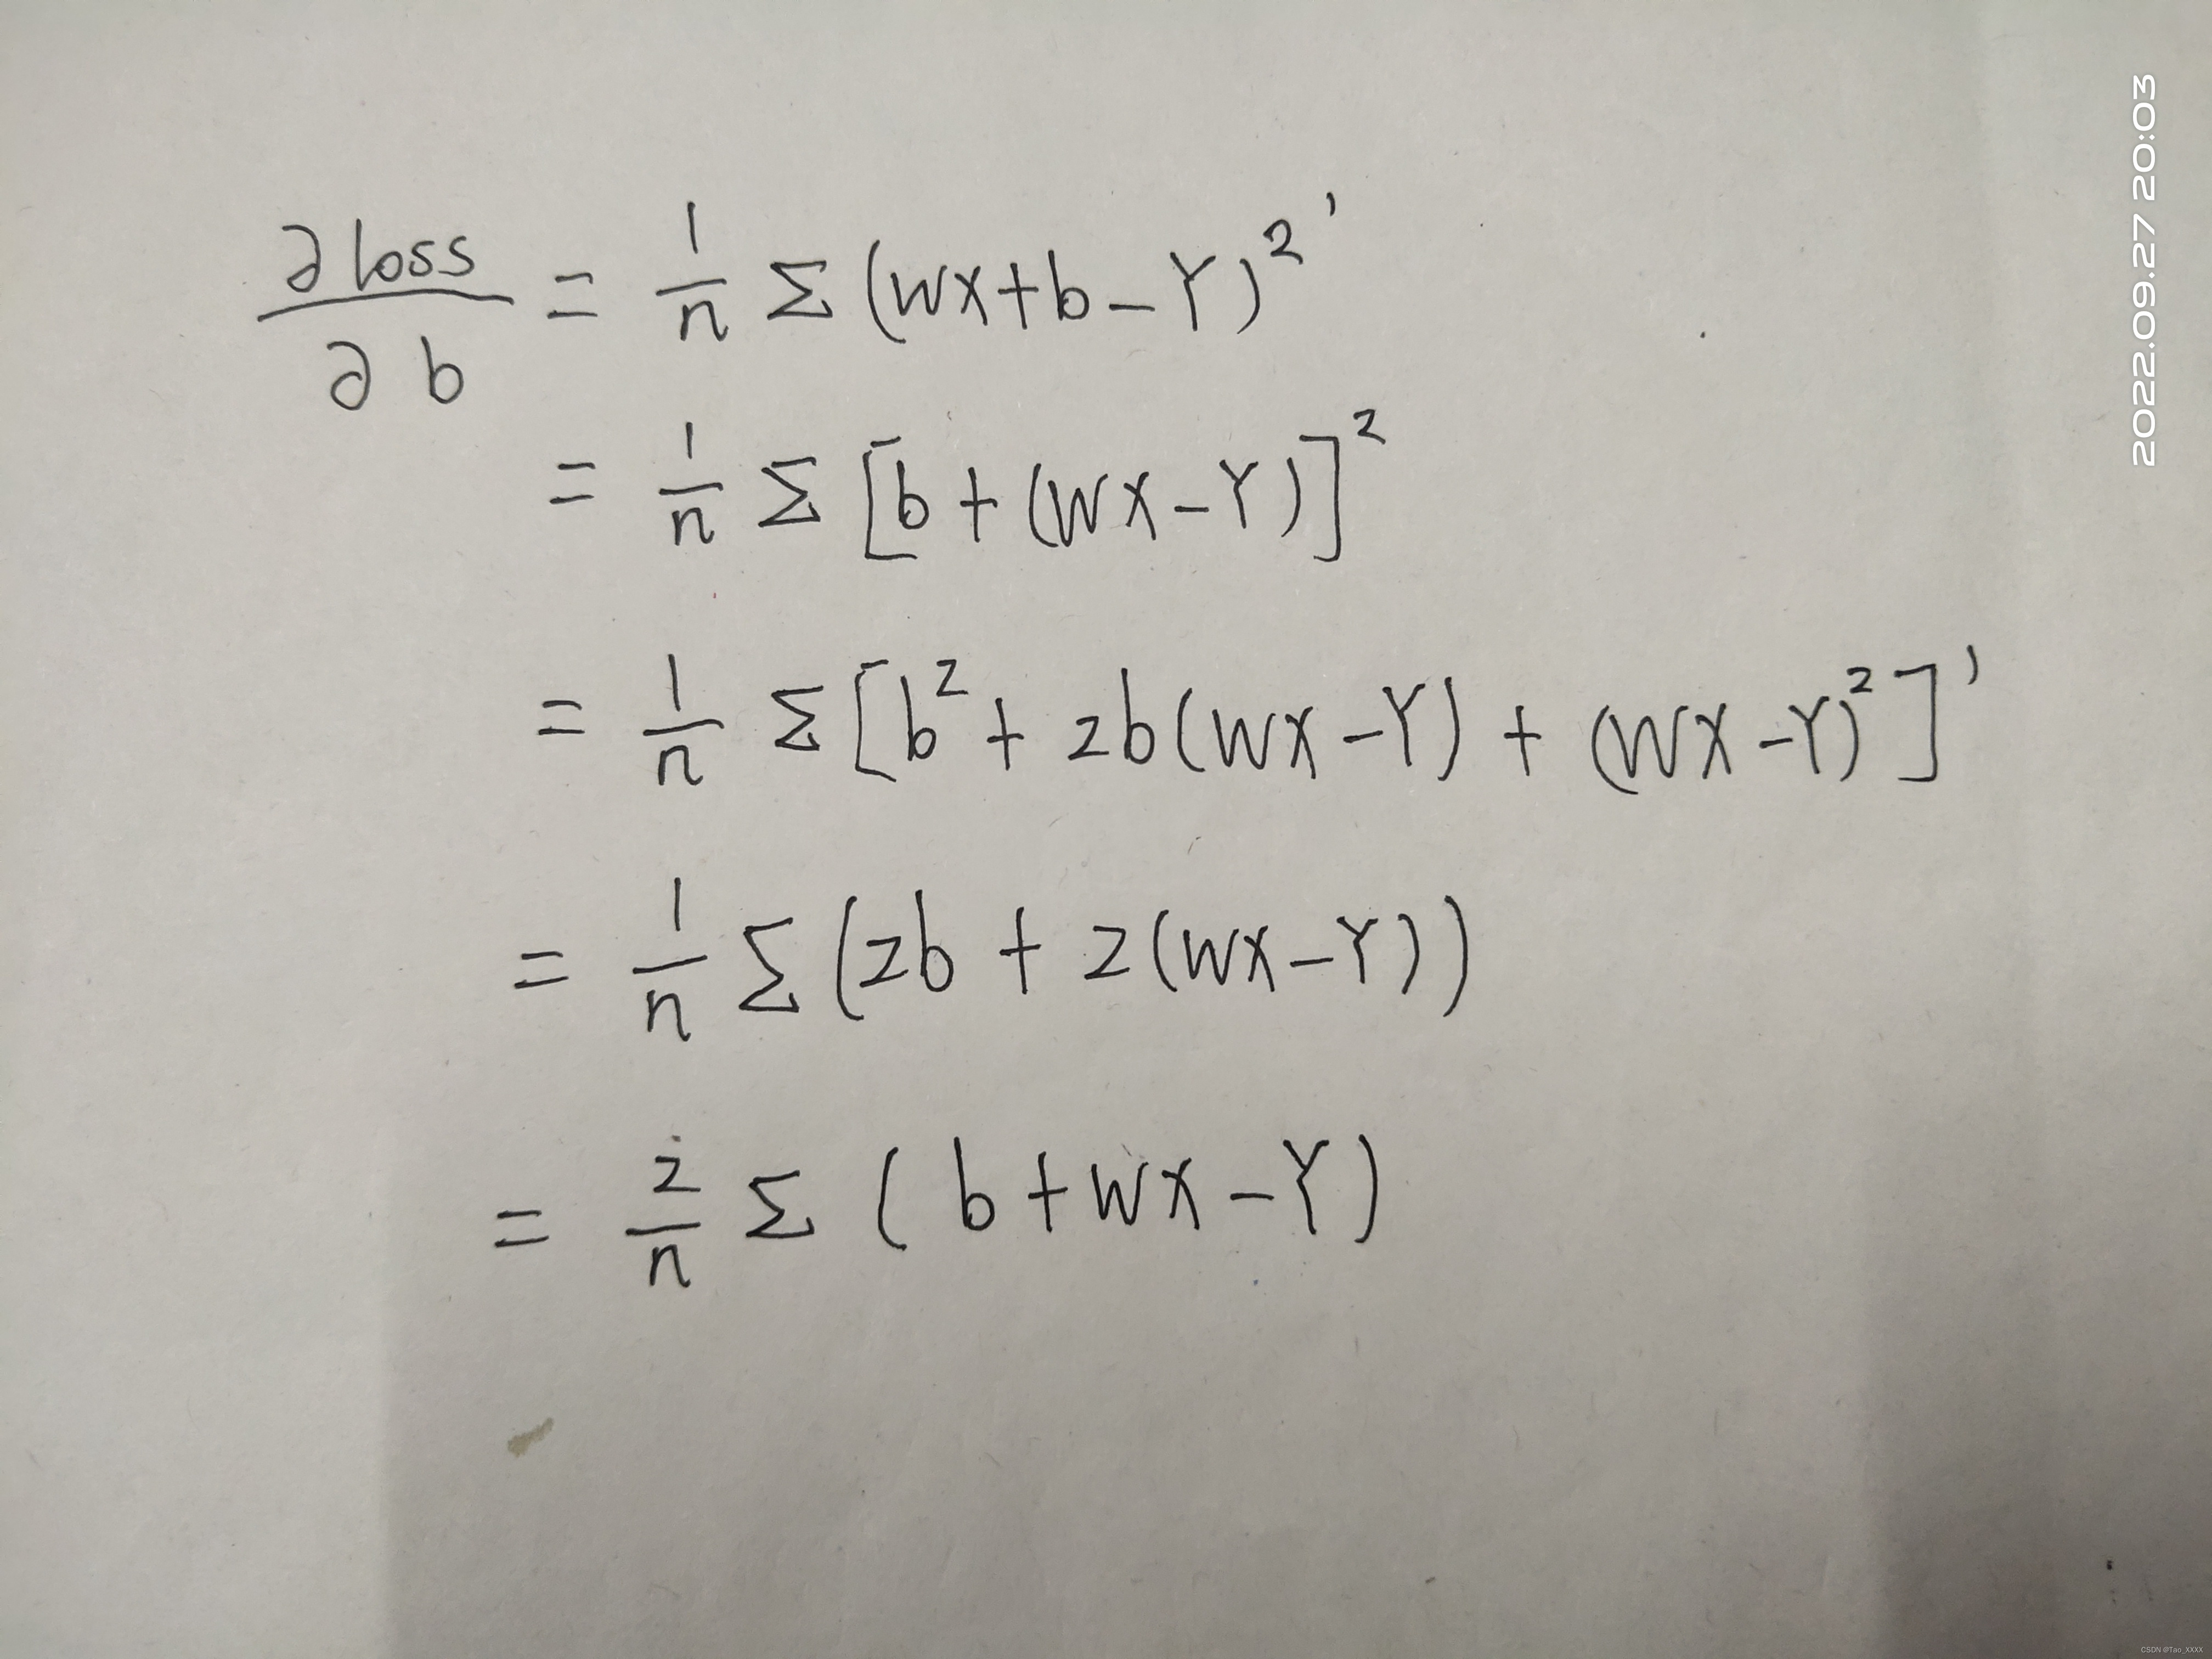 ∂loss/∂b = 1/n Σ (wx+b-Y)²'
= 1/n Σ [b + (wx-Y)]²
= 1/n Σ [b² + 2b(wx-Y) + (wx-Y)²]'
= 1/n Σ (2b + 2(wx-Y))
= 2/n Σ (b+wx-Y)
2022.09.27 20:03
CSDN @Tao_XXXX